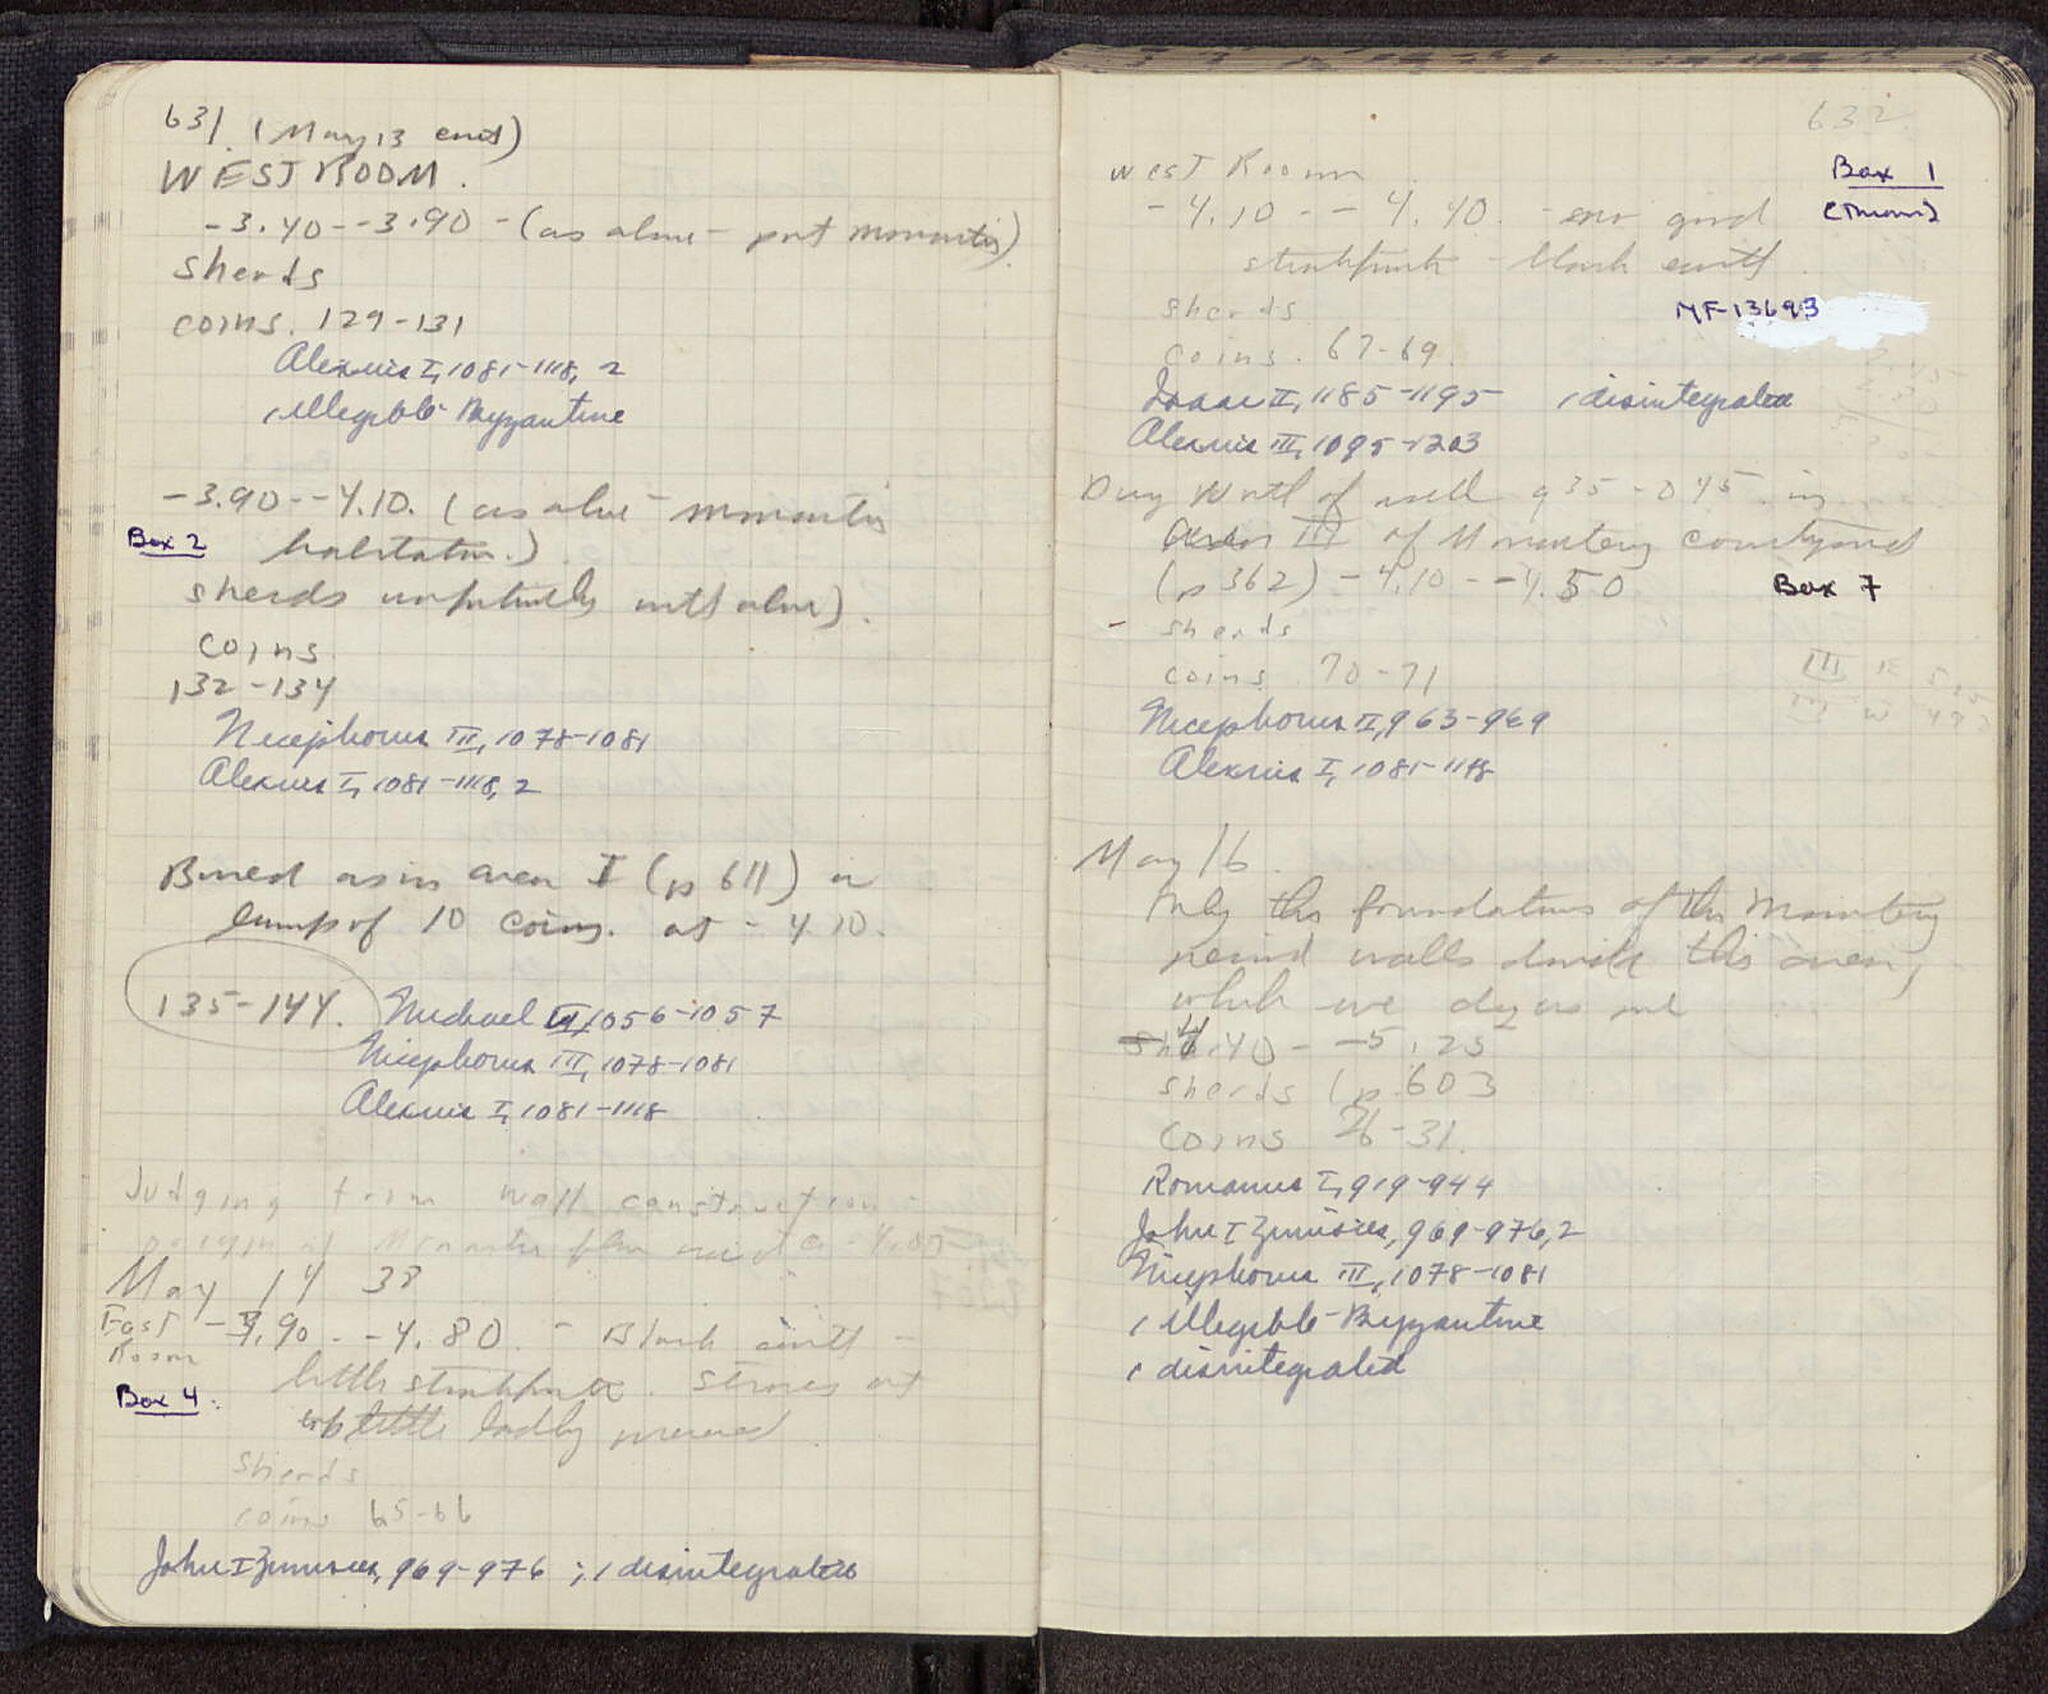 631. (May 13 cont)
WEST ROOM.
-3.40--3.90 - (as above - post monastery).
sherds
coins. 129-131
Alexius I, 1081-1118, 2
1 illegible Byzantine
-3.90--4.10. (as above - monastery
Box 2 habitation.)
sherds unfortunately with above).
coins
132-134
Nicephorus III, 1078-1081
Alexius I, 1081-1118, 2
Buried as in area I (p 611) a
lump of 10 coins. at -4.10.
135-144. Michael VI, 1056-1057
Nicephorus III, 1078-1081
Alexius I, 1081-1118
Judging from wall construction
May 14 38
East Room -3.90--4.80. - Black earth -
little stratification. Stones
badly preserved
Box 4
sherds
coins 65-66
John I Zimisces, 969-976; 1 disintegrated
632
West Room
Box 1
-4.10--4.40. - no good
black earth
MF-13693
sherds
coins. 67-69
Isaac II, 1185-1195 1 disintegrated
Alexius III, 1095-1203
Dug North of well 935-045 in
Area III of Monastery courtyard
(p 362) -4.10--4.50
Box 7
- sherds
coins 70-71
Nicephorus II, 963-969
Alexius I, 1081-1118
May 16
Only the foundations of the Monastery
period walls divide this area,
which we dig as one
-4.40--5.25
sherds (p. 603
coins 26-31.
Romanus I, 919-944
John I Zimisces, 969-976, 2
Nicephorus III, 1078-1081
1 illegible Byzantine
1 disintegrated